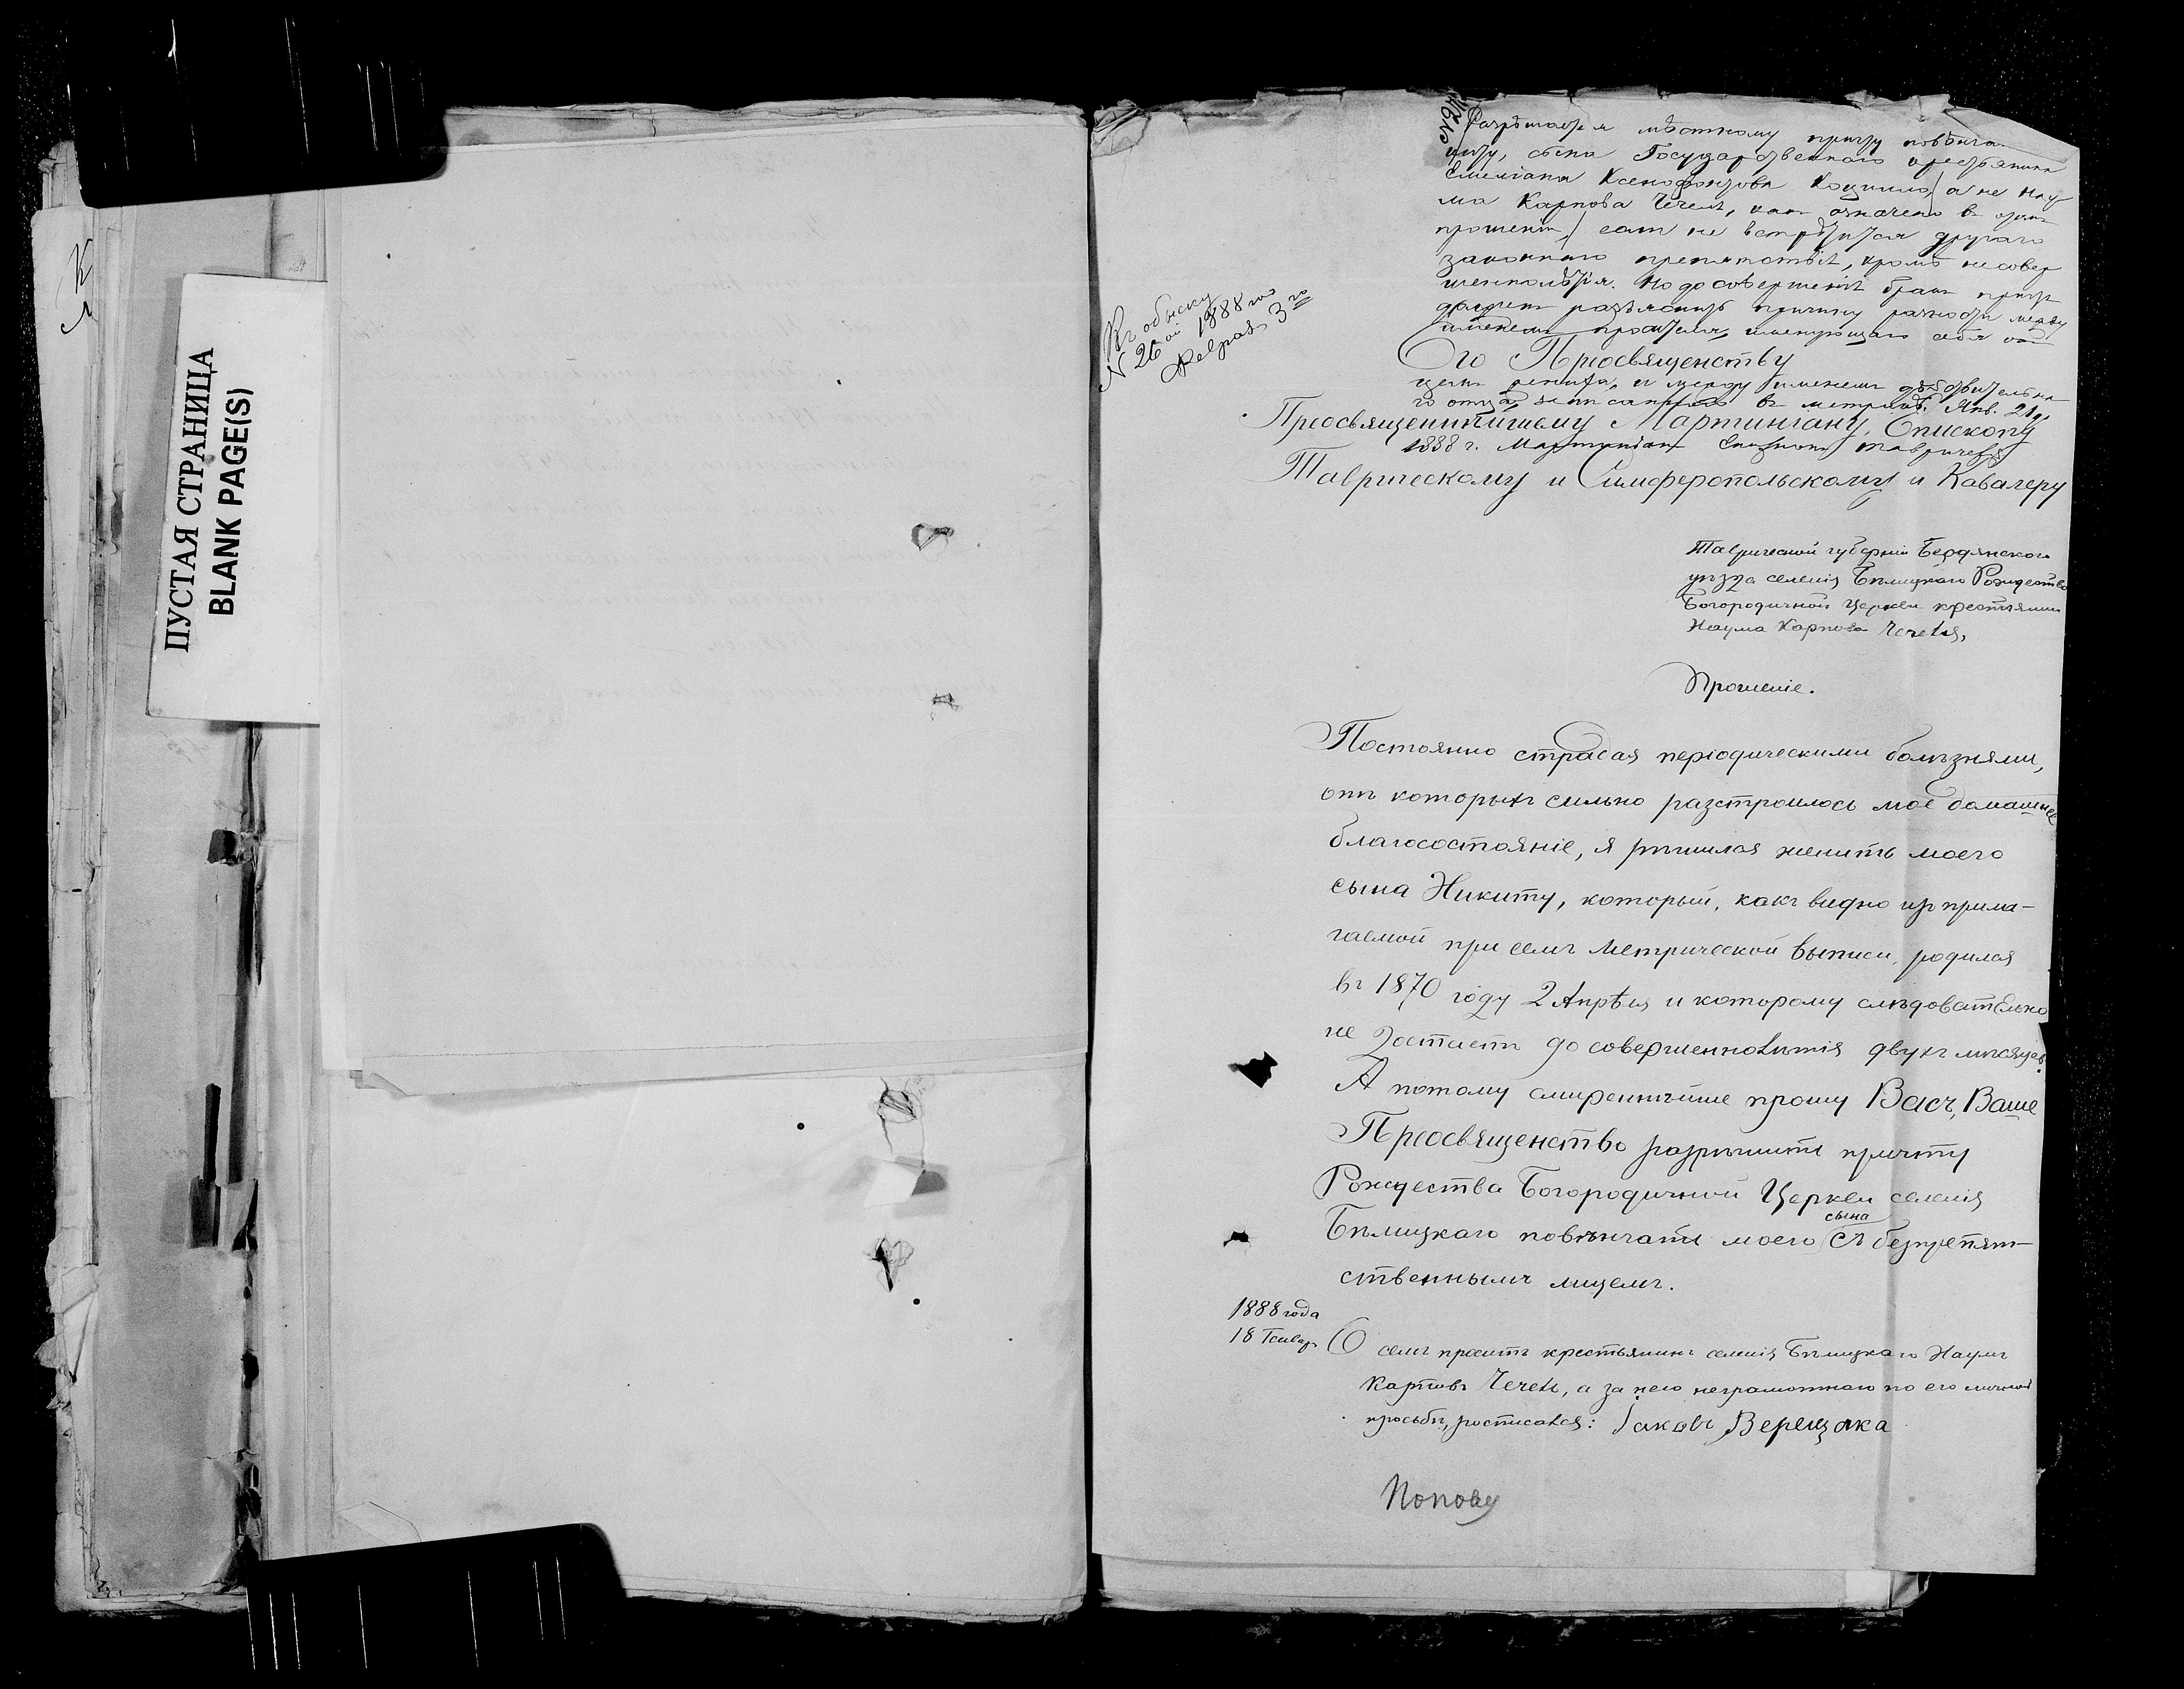 ПУСТАЯ СТРАНИЦА
BLANK PAGE(S)
Разрѣшается мѣстному причту повѣнча
сына Государственнаго крестьянина
Емеліана Ксенофонтова а не Нау
ма Карпова Чечеля, какъ означено въ
прошеніи, если не встрѣтится другаго
законнаго препятствія, кромѣ несовер
шеннолѣтія. Но до совершенія брака причтъ
разъяснить причину разности между
именемъ просителя, именующаго себя
Его Преосвященству
и между именемъ дѣйствительна
го отца, въ Янв. 21 д.
Преосвященнѣйшему Мартиніану, Епископу
1888 г. Мартиніанъ Епископъ Таврическій
Таврическому и Симферопольскому и Кавалеру
Къ обыску
N 26ой 1888 го
Февраля 3го
Таврической губерніи Бердянскаго
уѣзда селенія Бѣлицкаго Рождество
Богородичной Церкви крестьянина
Наума Карпова Чечеля,
Прошеніе.
Постоянно страдая періодическими болѣзнями,
отъ которыхъ сильно разстроилось мое домашнее
благосостояніе, я рѣшился женить моего
сына Никиту, который, какъ видно изъ прила-
гаемой при семъ Метрической выписи, родился
въ 1870 году 2 Апрѣля и которому слѣдовательно
не достаетъ до совершеннолѣтія двухъ мѣсяцевъ.
А потому смиреннѣйше прошу Васъ, Ваше
Преосвященство разрѣшить причту
Рождества Богородичной Церкви селенія
Бѣлицкаго повѣнчать моего сына съ безпрепят-
ственнымъ лицемъ.
1888 года
18 Генвар
О семъ проситъ крестьянинъ селенія Бѣлицкаго Наумъ
Карповъ Чечель, а за него неграмотнаго по его личной
просьбѣ, росписался: Іаковъ Верещака
Попову